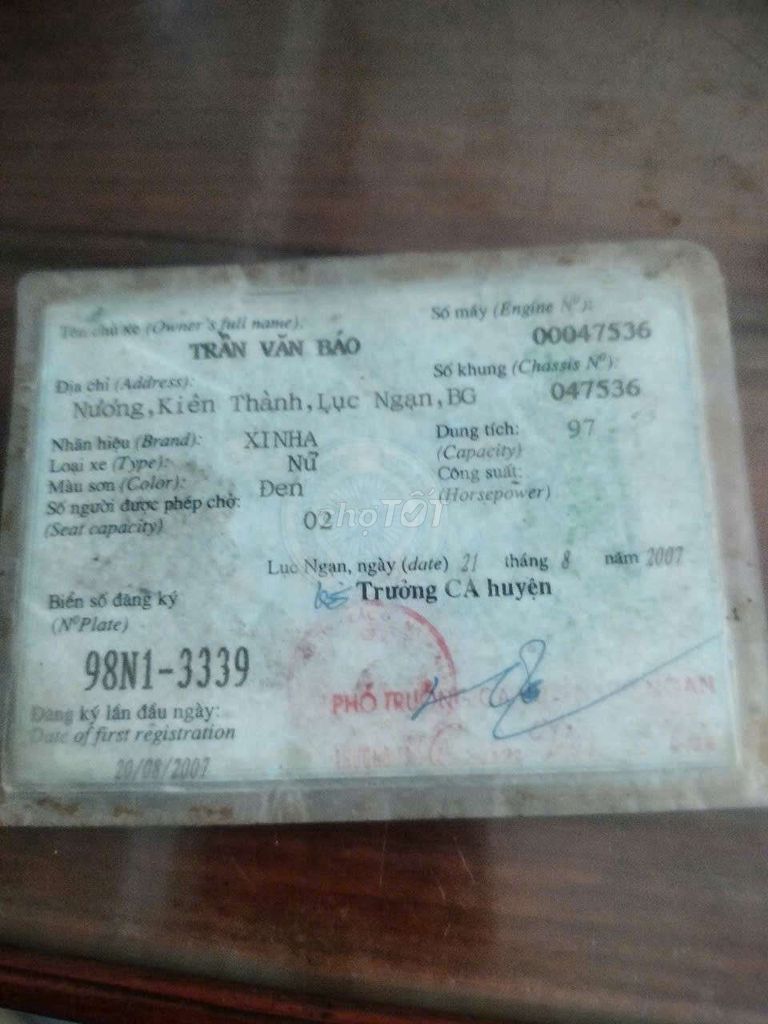 Tên chủ xe (Owner's full name):
TRẦN VĂN BÁO
Số máy (Engine Nº):
00047536
Địa chỉ (Address):
Nương,Kiên Thành,Lục Ngạn,BG
Số khung (Chassis Nº):
047536
Nhãn hiệu (Brand): XINHA
Dung tích: 97
(Capacity)
Loại xe (Type): Nữ
Công suất:
(Horsepower)
Màu sơn (Color): Đen
Số người được phép chở: 02
(Seat capacity)
chợTỐT
Lục Ngạn, ngày (date) 21 tháng 8 năm 2007
Trưởng CA huyện
Biển số đăng ký
(NºPlate)
98N1-3339
PHÓ TRƯỞNG CA HUYỆN NGẠN
Đăng ký lần đầu ngày:
Date of first registration
20/08/2007